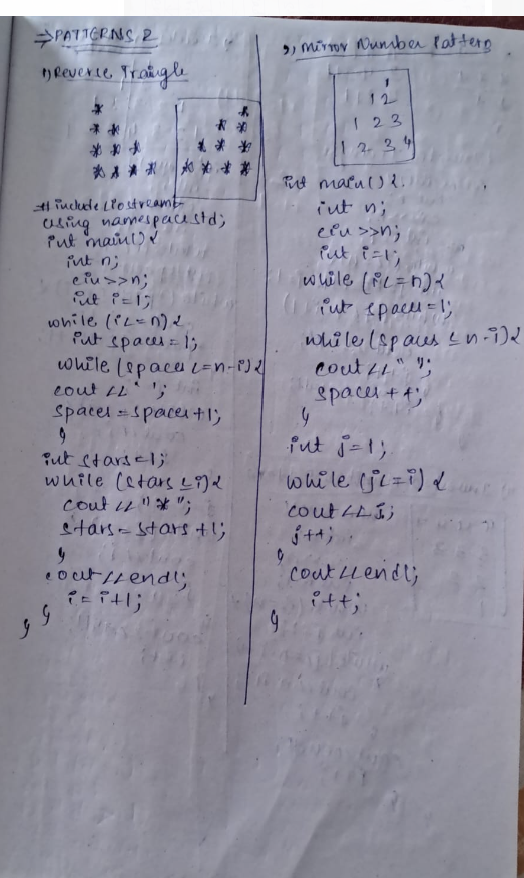 ⇒PATTERNS 2
1) Reverse Traingle
*
* *
* * *
* * * *
*
* *
* * *
* * * *
# include <iostream>
using namespace std;
int main() {
int n;
cin >>n;
int i=1;
while (i<=n) {
int spaces=1;
while (spaces <=n-i) {
cout << " ";
spaces = spaces+1;
}
int stars=1;
while (stars ≤i) {
cout << "*";
stars = stars +1;
}
cout<<endl;
i= i+1;
}
}
2) mirror Number Pattern
1
1 2
1 2 3
1 2 3 4
int main() {
int n;
cin >>n;
int i=1;
while (i<=n) {
int spaces=1;
while (spaces ≤ n-i) {
cout << " ";
spaces ++;
}
int j=1;
while (j<=i) {
cout << j;
j++;
}
cout <<endl;
i++;
}